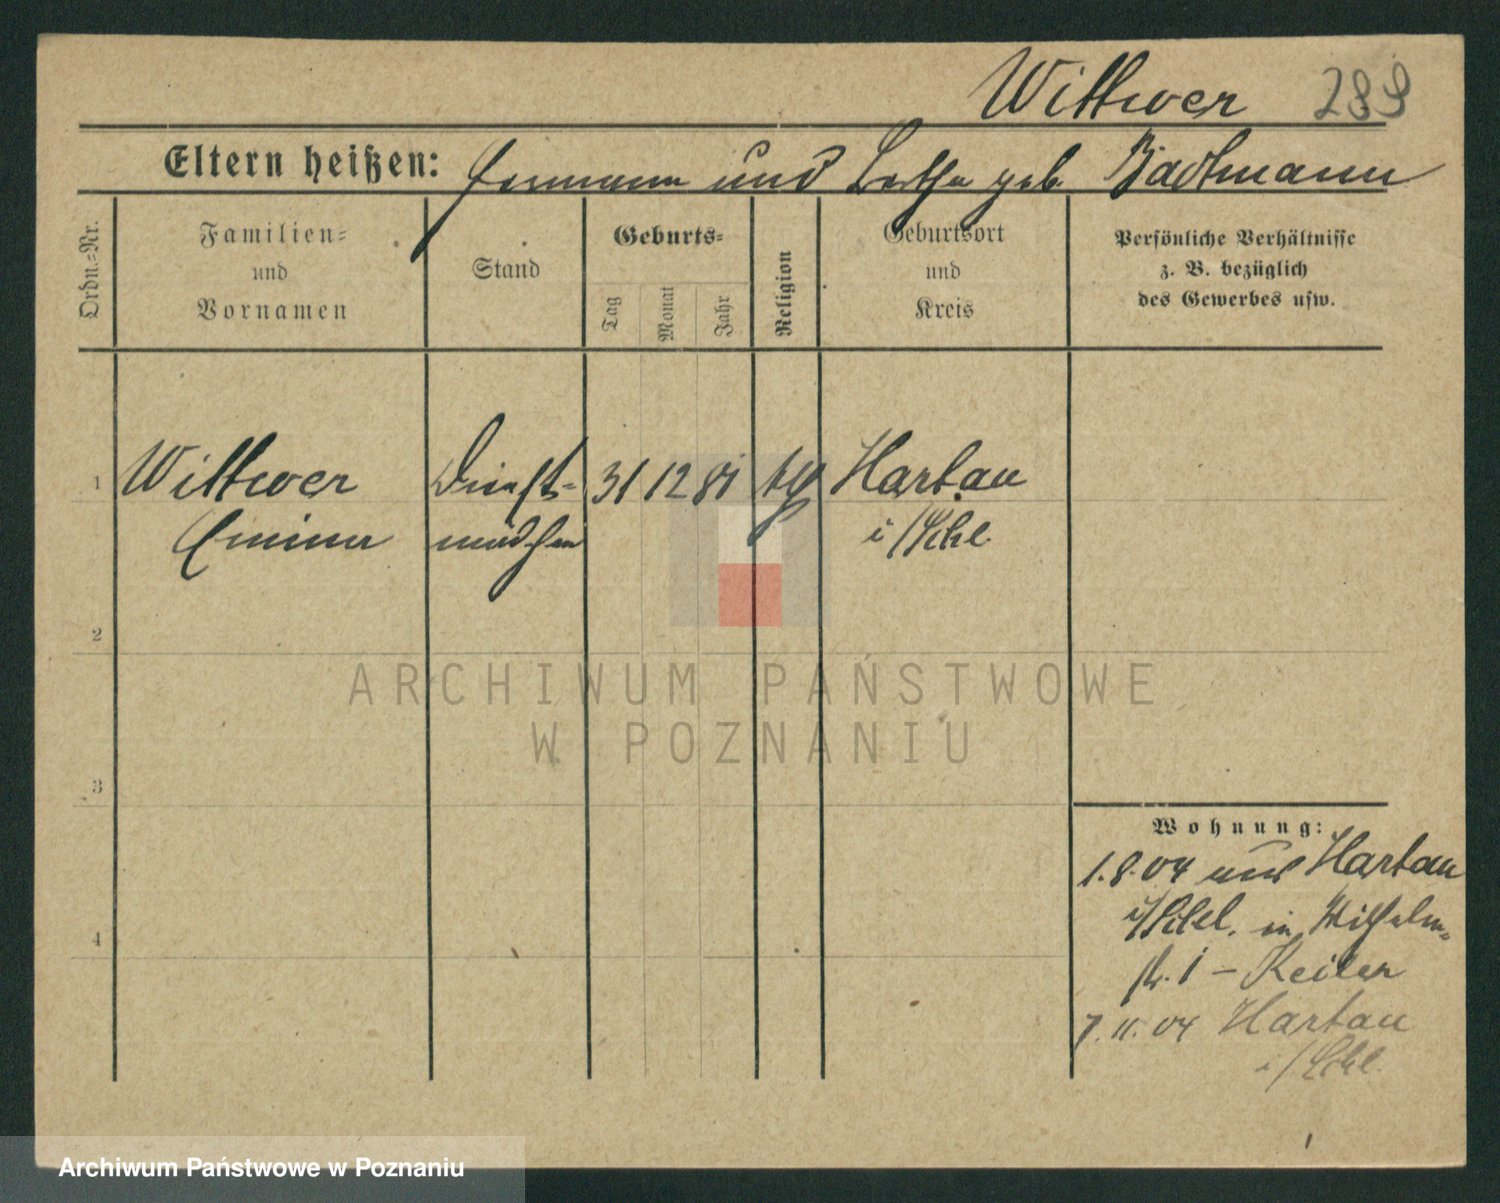 Wittwer 289
Eltern heißen: Hermann und Bertha geb. Bachmann
Ordn.-Nr.
Familien-
und
Vornamen
Stand
Geburts-
Tag
Monat
Jahr
Religion
Geburtsort
und
Kreis
Persönliche Verhältnisse
z. B. bezüglich
des Gewerbes usw.
1 Wittwer Dienst- 31 12 81 Hartau
Emma mädchen i/Schl.
2
3
4
Wohnung:
1.8.04 aus Hartau
i/Schl. in Wilhelm-
str. 1 –
7.11.04 Hartau
i/Schl.
ARCHIWUM PAŃSTWOWE
W POZNANIU
Archiwum Państwowe w Poznaniu